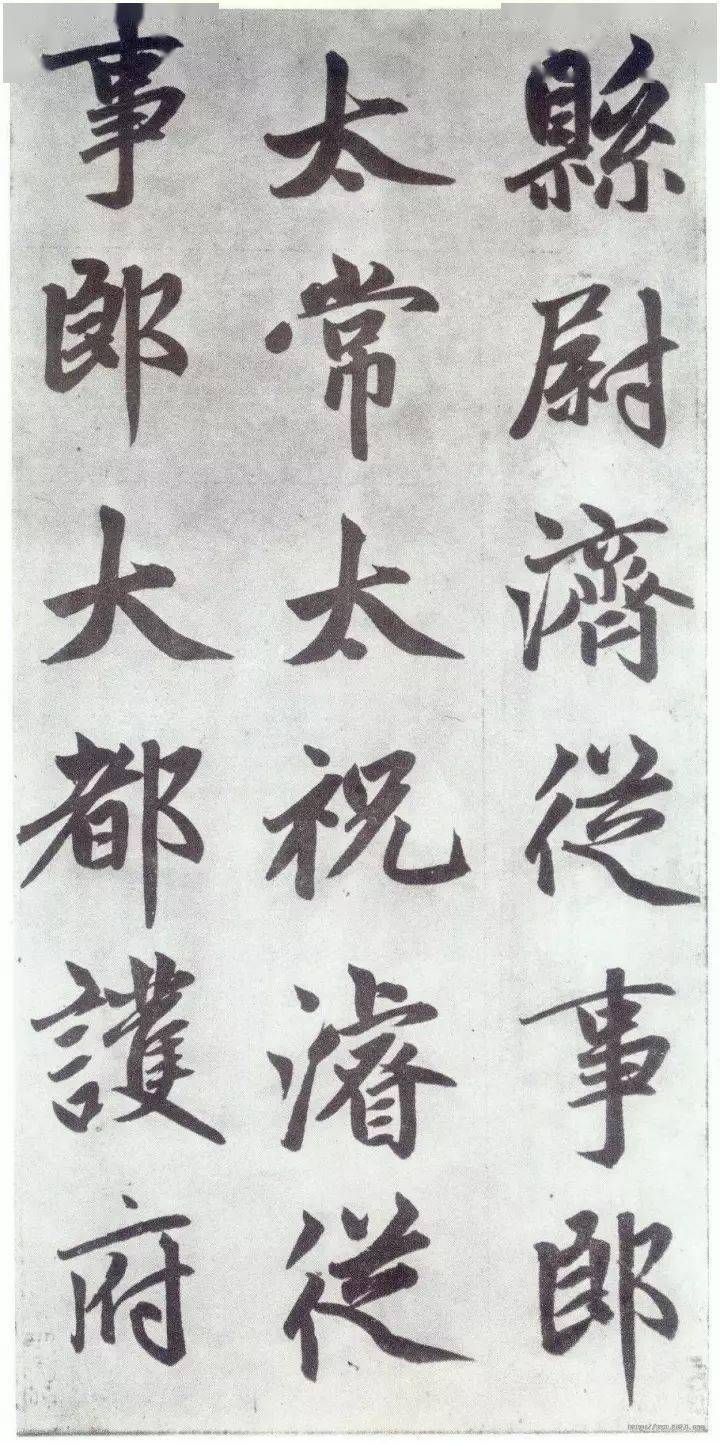 縣尉濟從事郎
太常太祝濬從
事郎大都護府